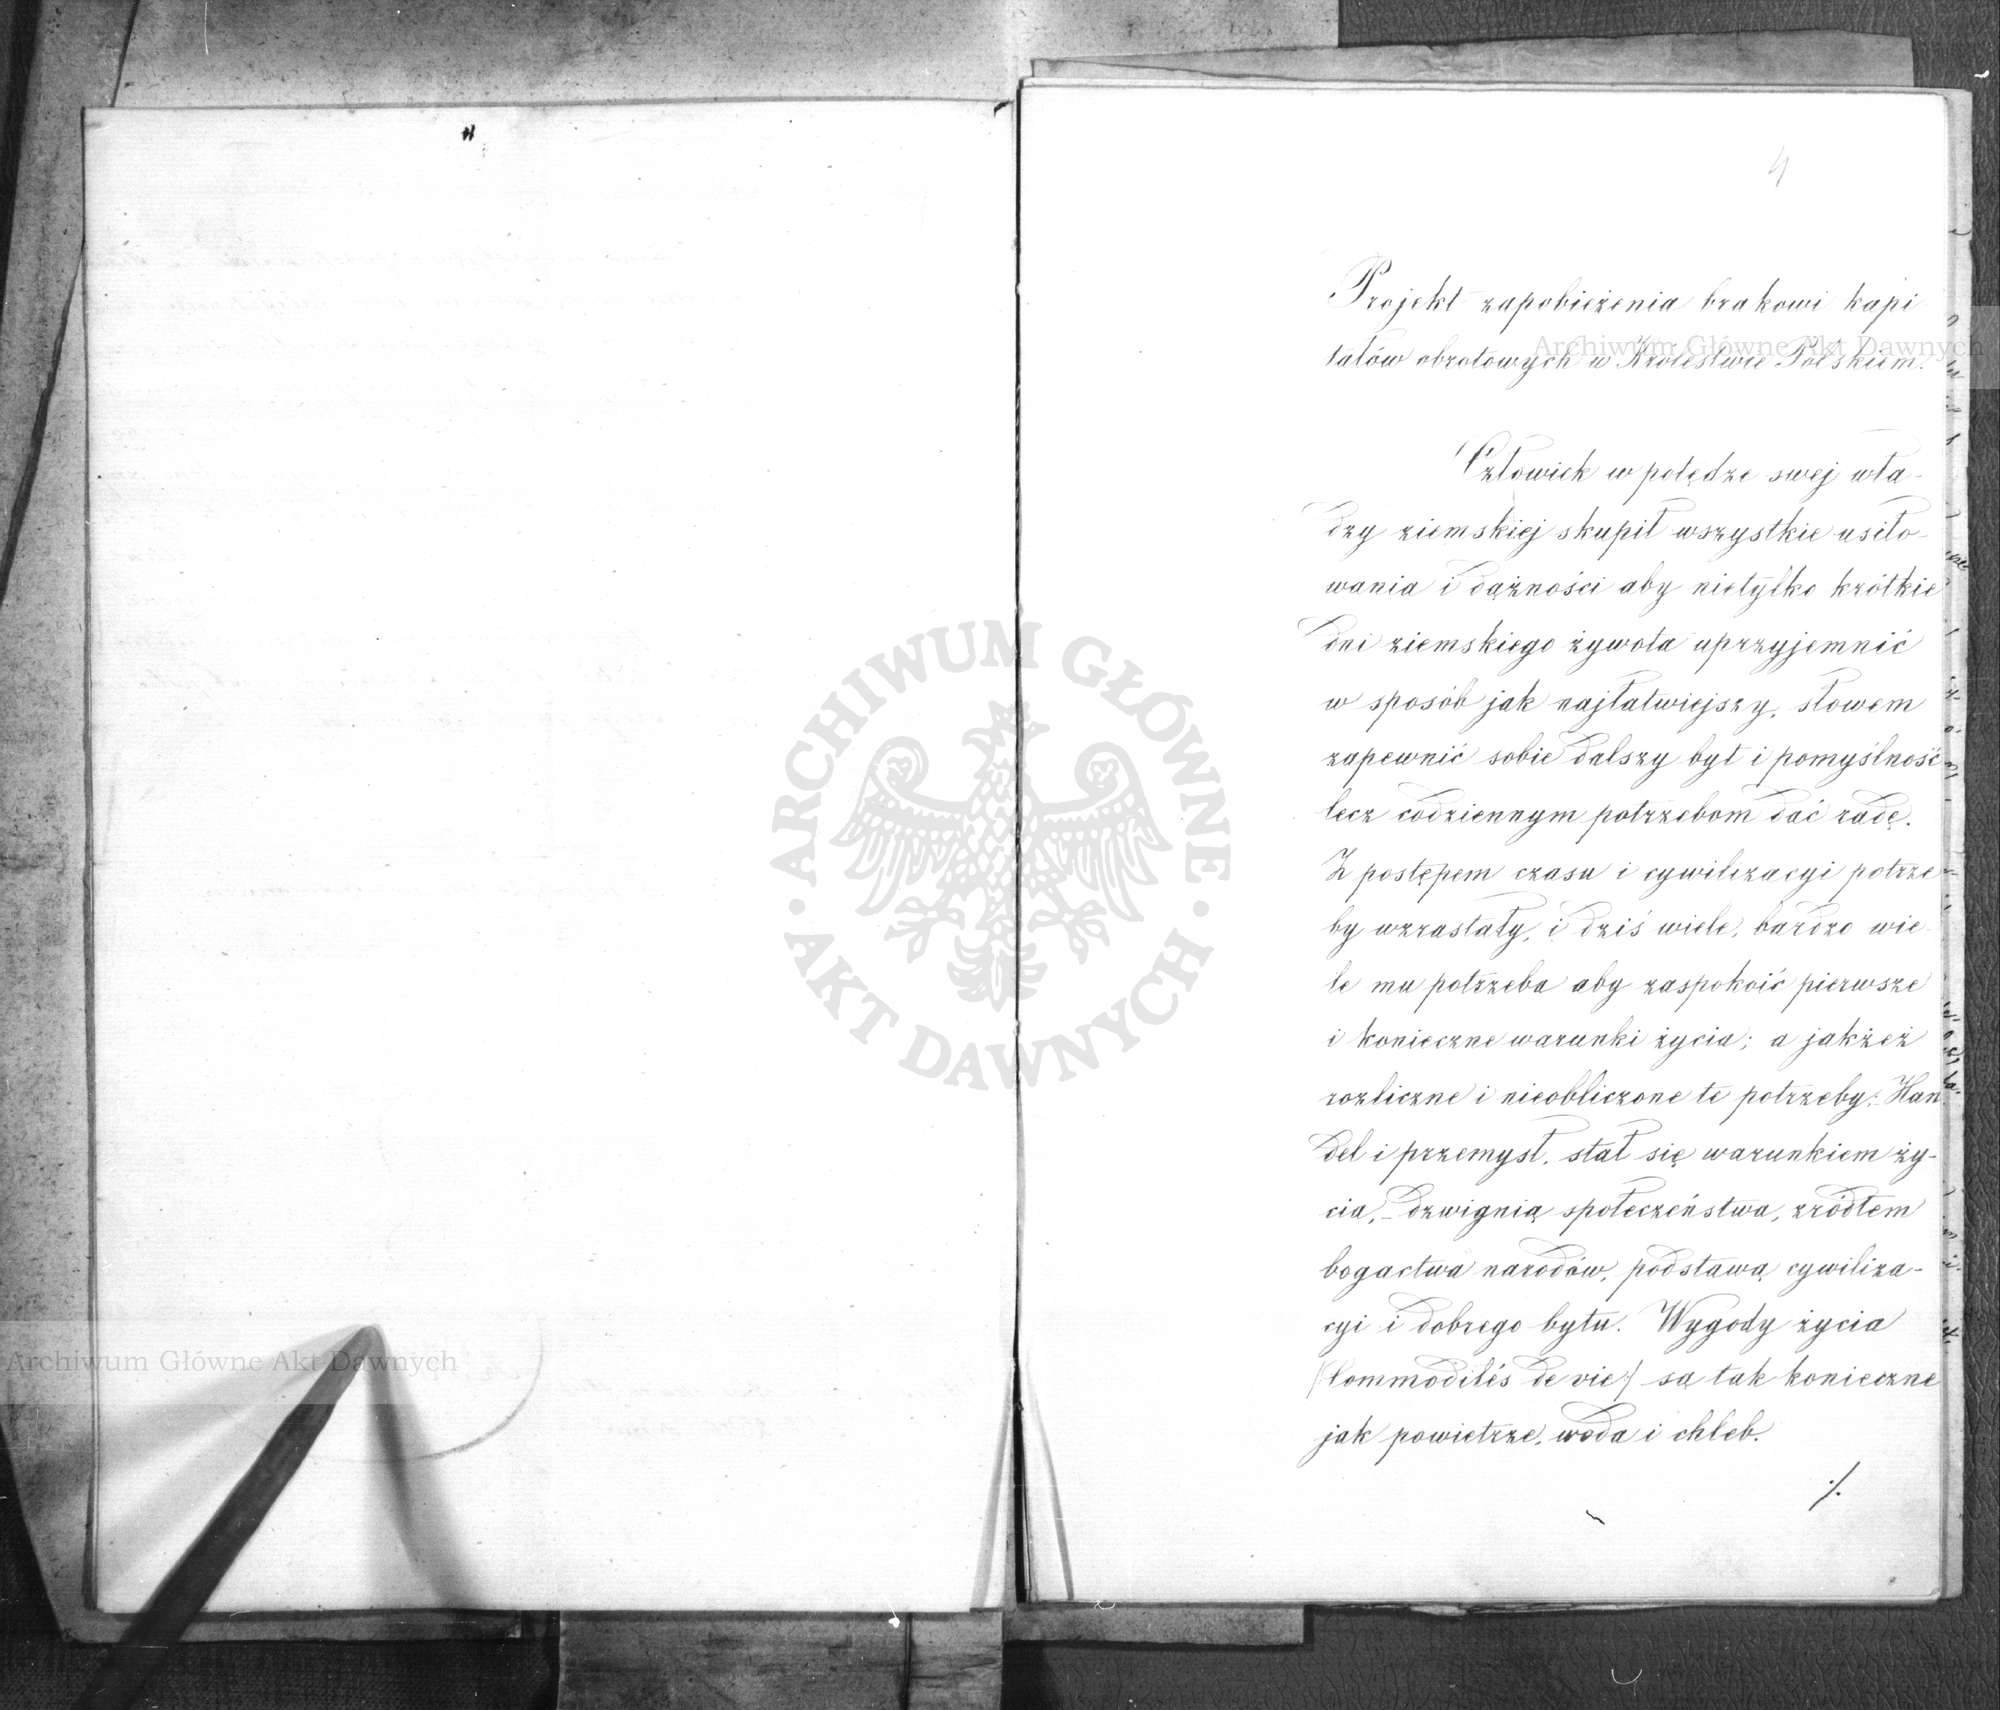 4
Projekt zapobieżenia brakowi kapi
tałów obrotowych w Królestwie Polskiem.
Człowiek w potędze swej wła-
dzy ziemskiej skupił wszystkie usiło-
wania i dążności aby nietylko krótkie
dni ziemskiego żywota uprzyjemnić
w sposób jak najłatwiejszy, słowem
zapewnić sobie dalszy byt i pomyślność
lecz codziennym potrzebom dać radę.
Z postępem czasu i cywilizacyi potrze
by wzrastały, i dziś wiele, bardzo wie-
le mu potrzeba aby zaspokoić pierwsze
i konieczne warunki życia; a jakżeż
rozliczne i nieobliczone te potrzeby: Han
del i przemysł, stał się warunkiem ży-
cia, - dzwignią społeczeństwa, zródłem
bogactwa narodów, podstawą cywiliza-
cyi i dobrego bytu. Wygody życia
(Commodités de vie) są tak konieczne
jak powietrze, woda i chleb.
./.
ARCHIWUM GŁÓWNE
· AKT DAWNYCH ·
Archiwum Główne Akt Dawnych
Archiwum Główne Akt Dawnych